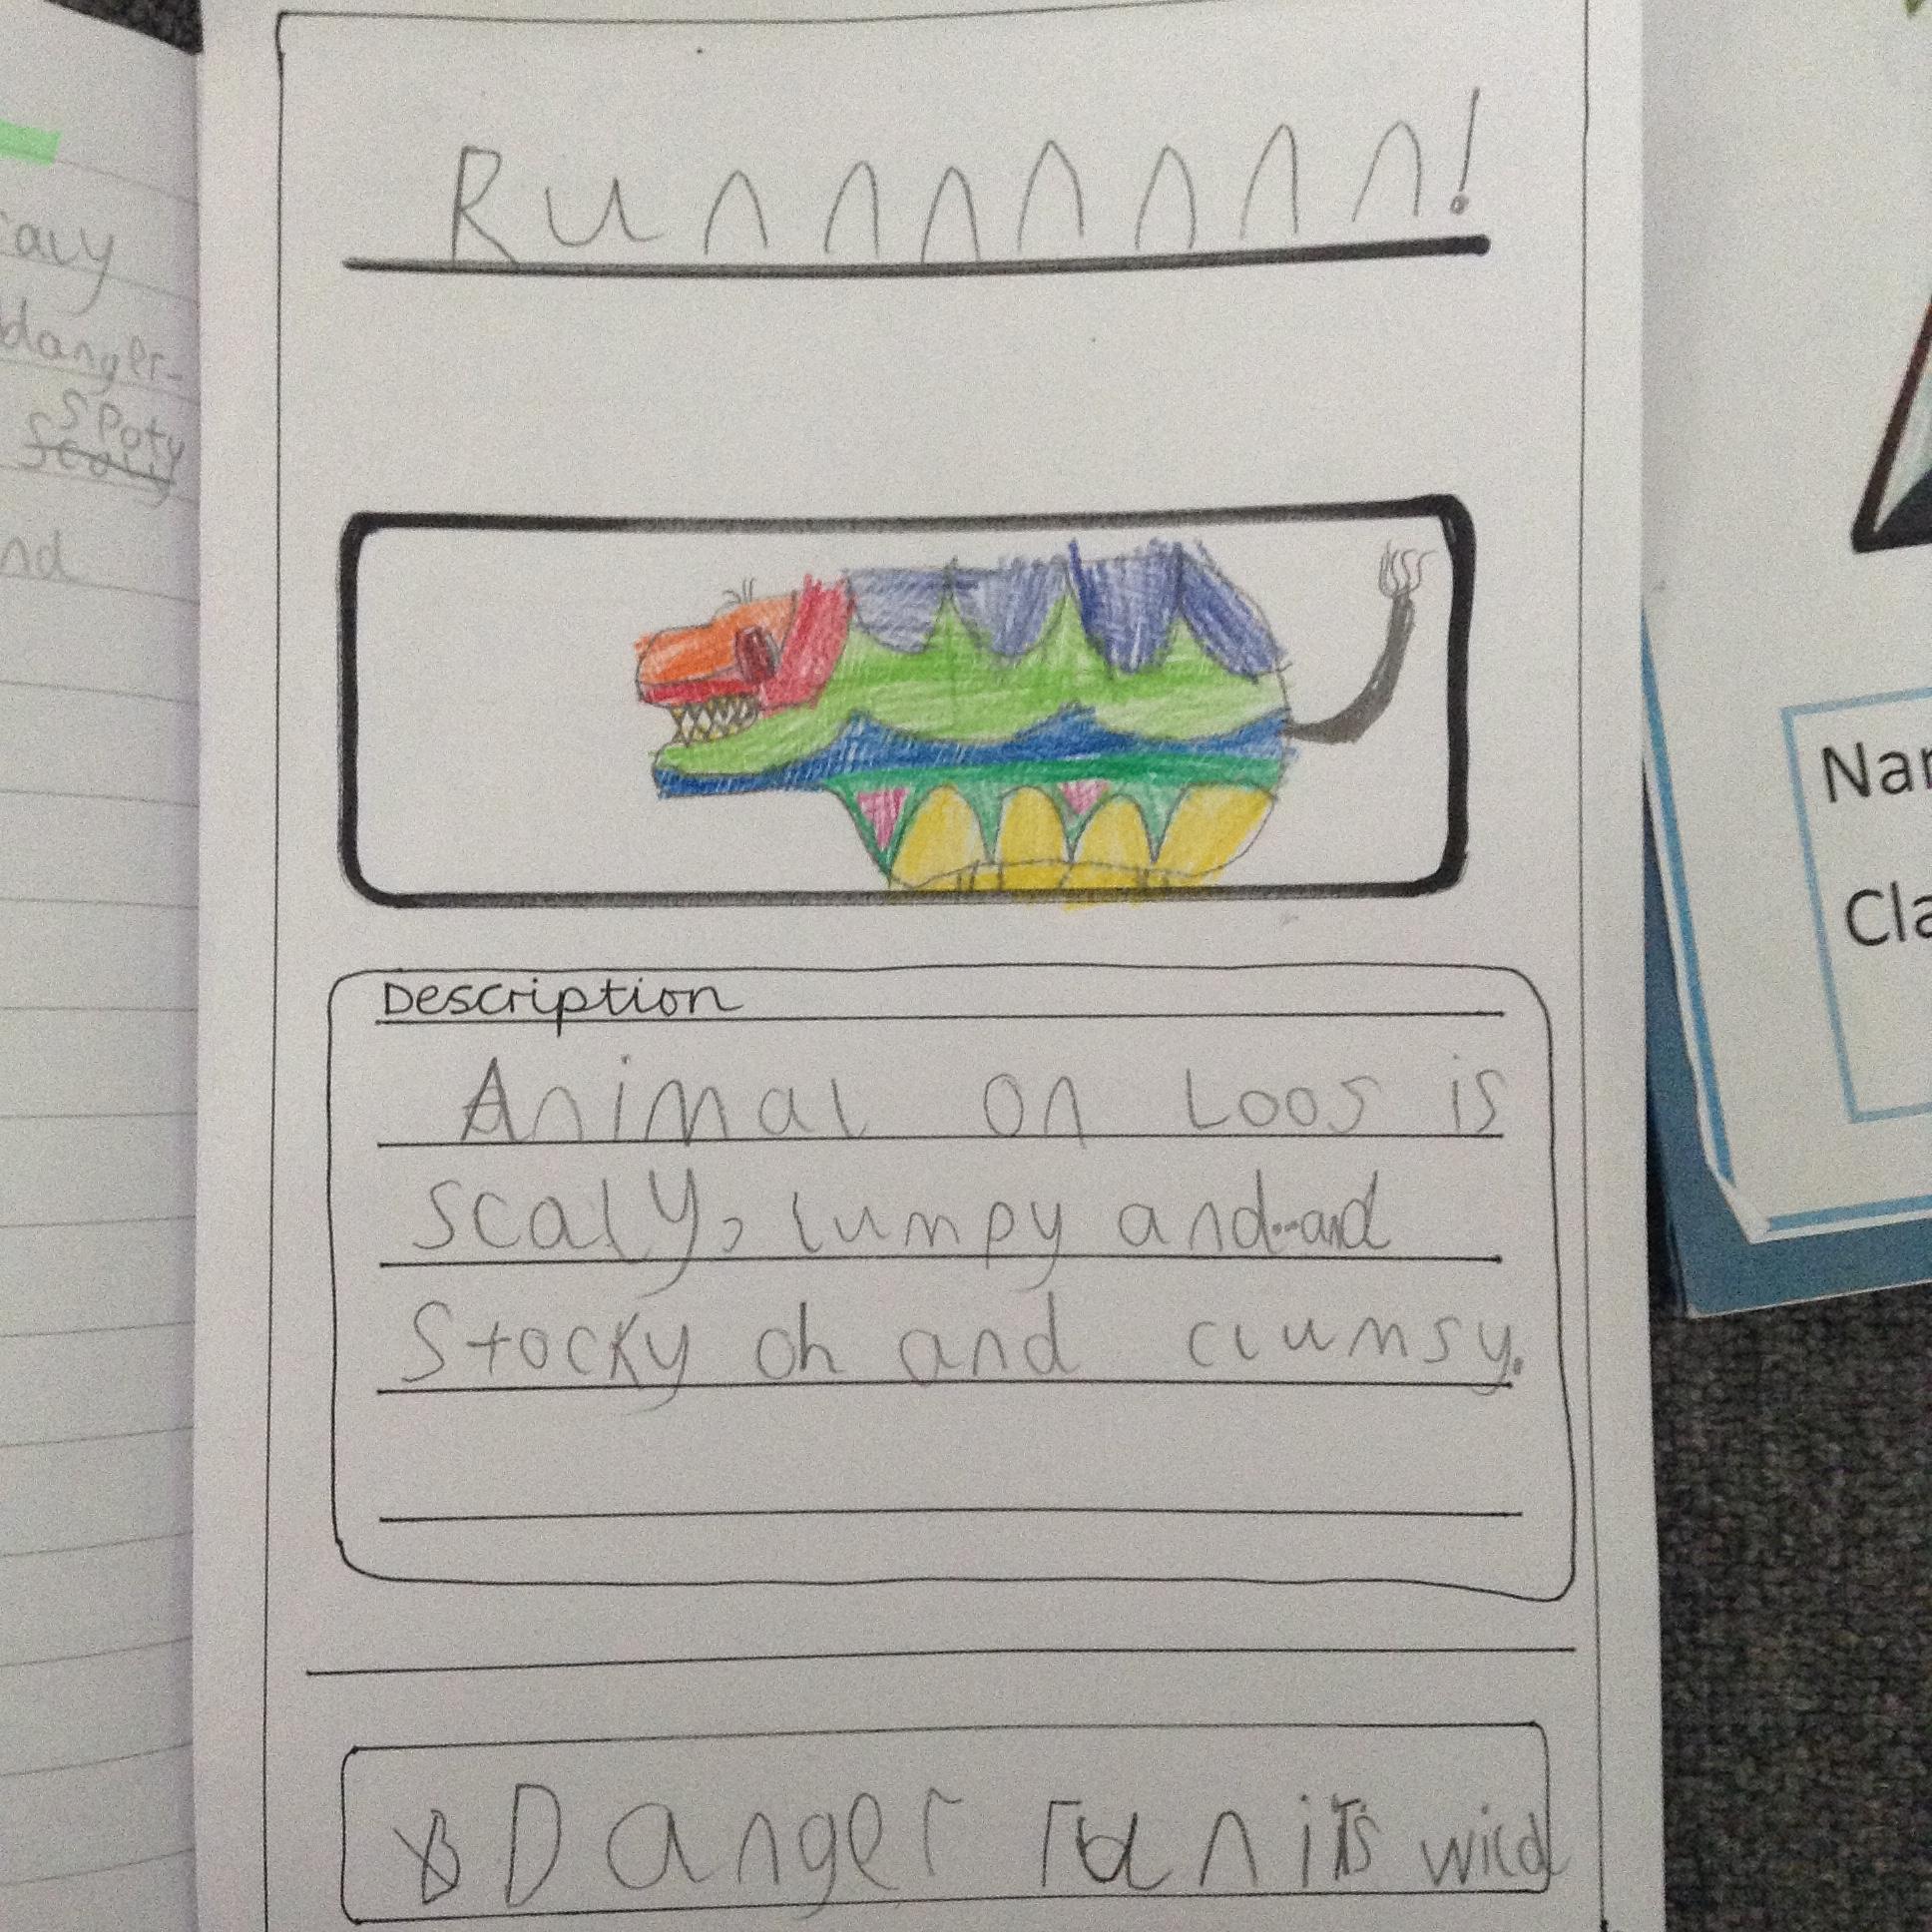 Runnnnnnn!
Description
Animal on Loos is
scaly, lumpy and...and
Stocky oh and clumsy.
Danger run its wild
danger-
SPoty